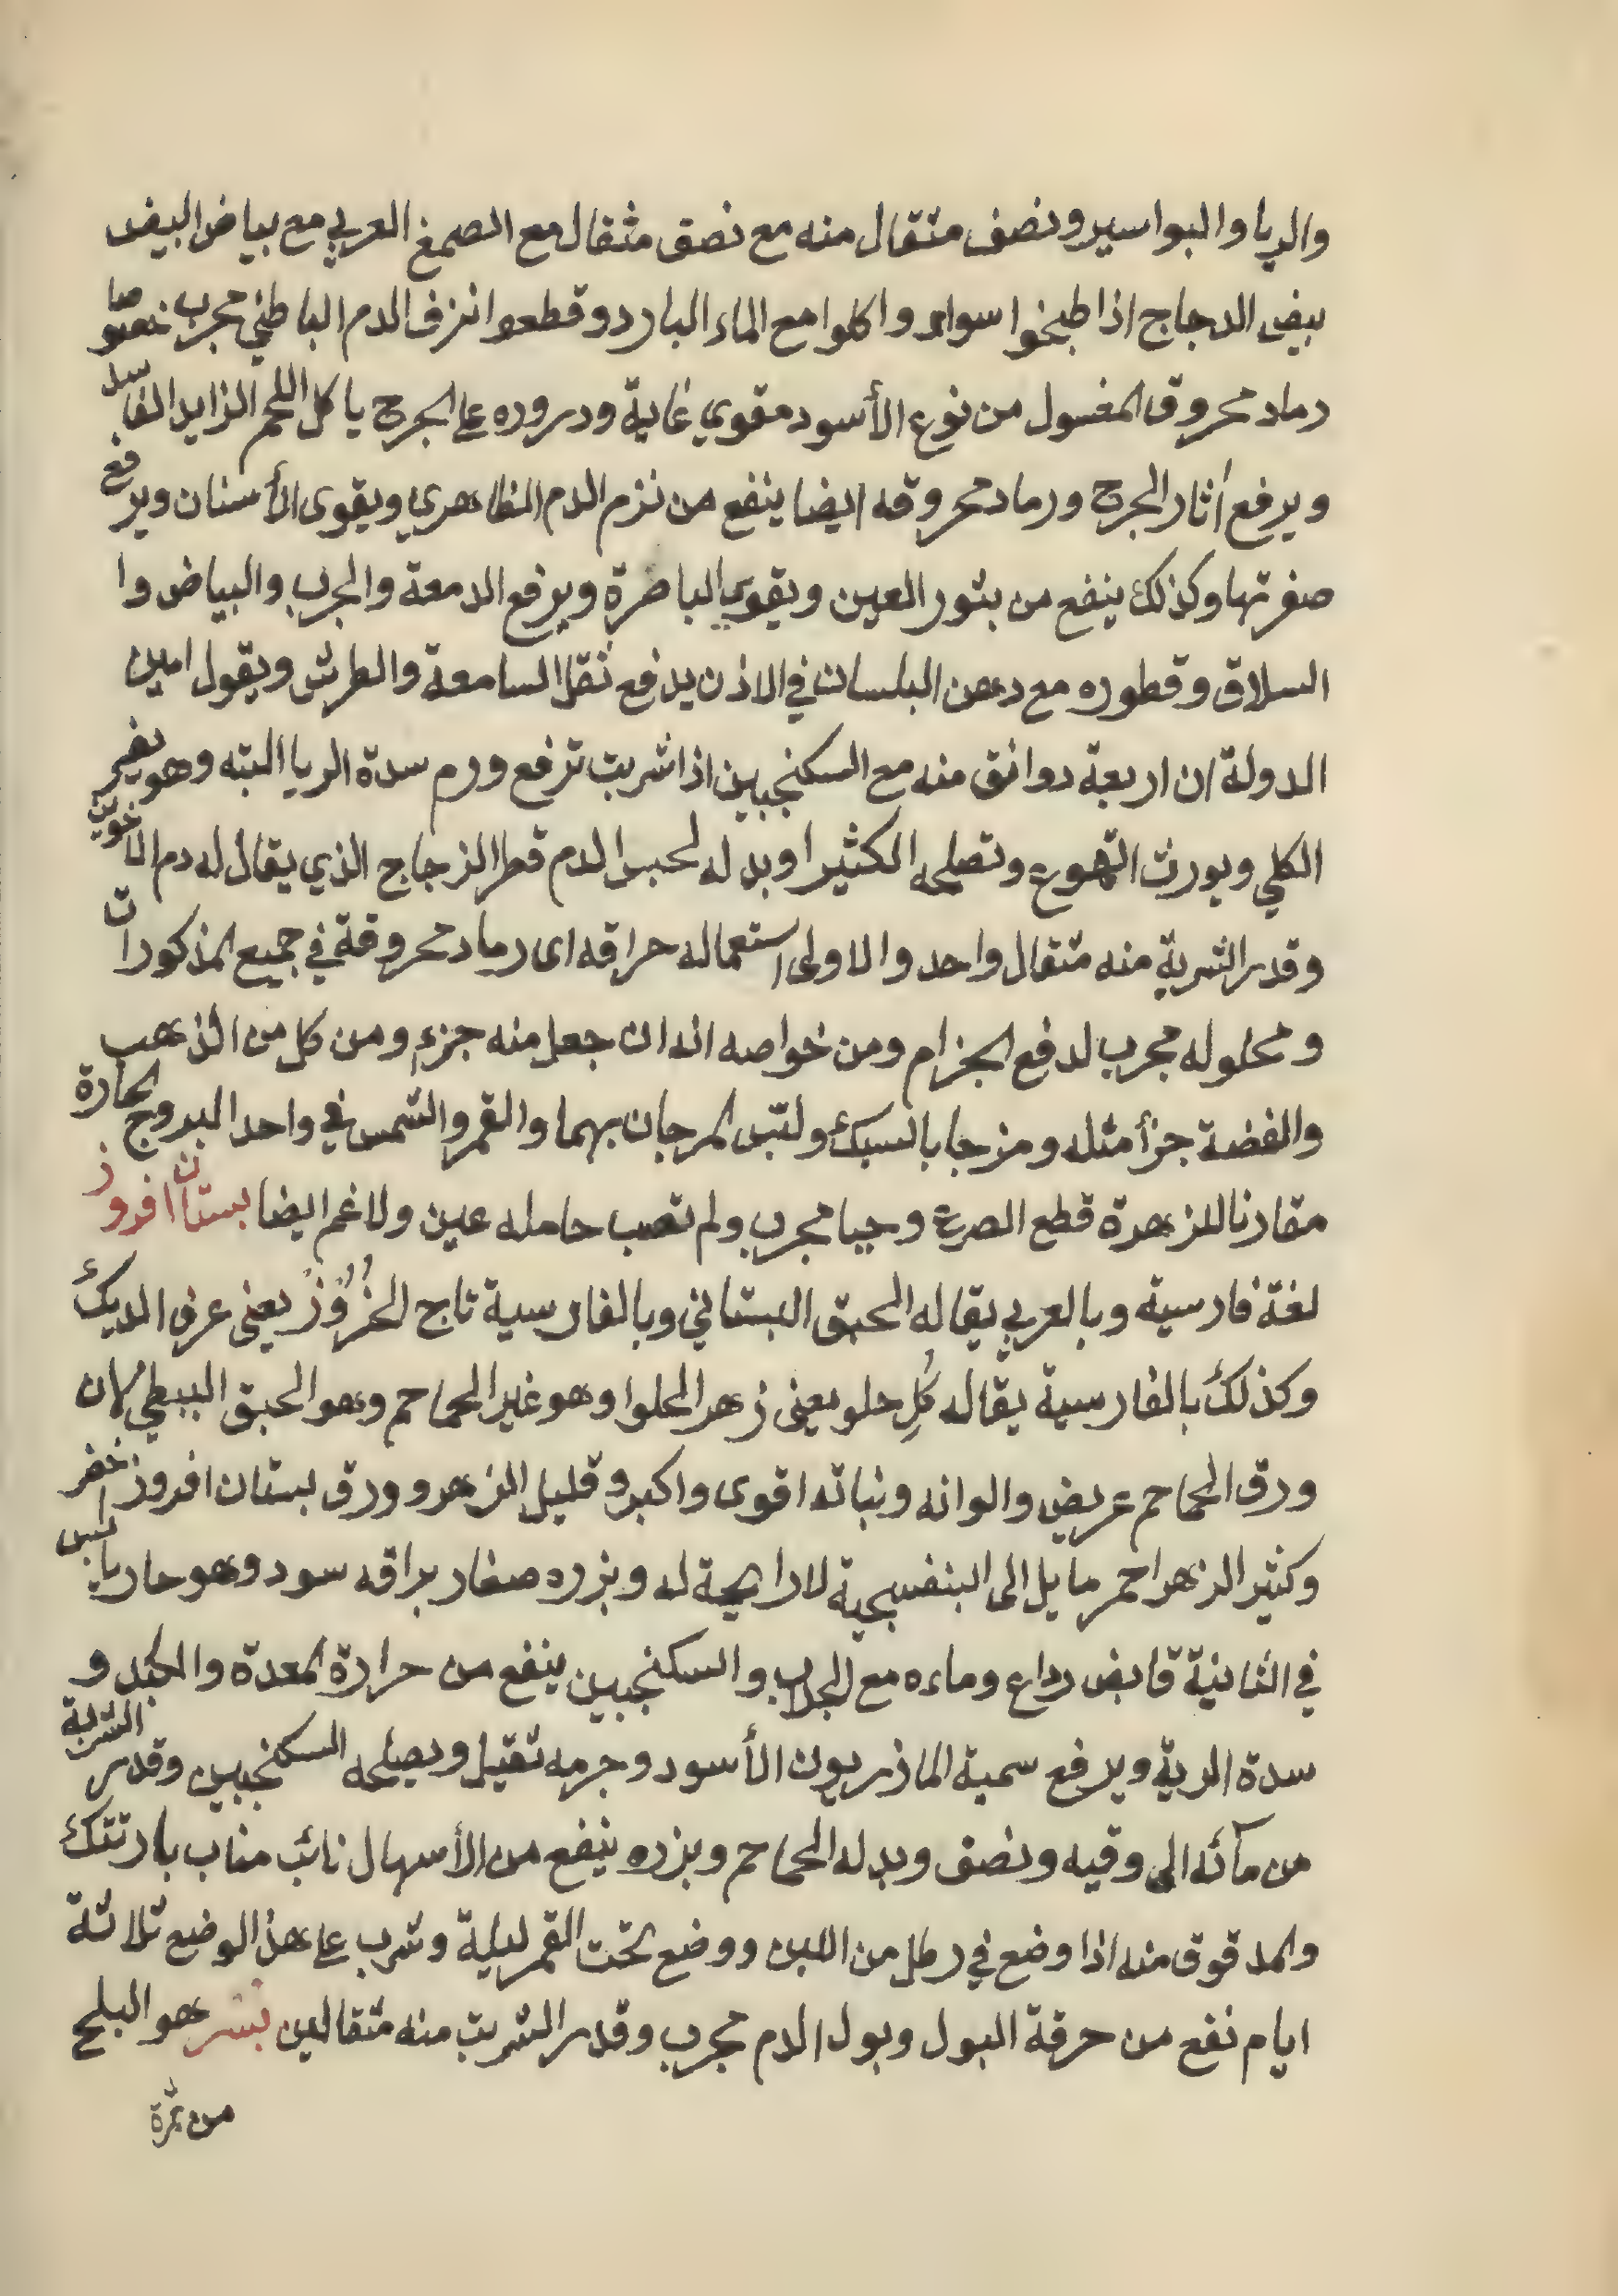 والريا والبواسير ونصف مثقال منه مع نصق مثقال مع الصمغ العربي مع بياض البيض
بيض الدجاج اذا طبخوا سواء واكلوا مع الماء البارد وقطعوا نزف الدم الباطني مجرب خصوصا
رماد محروق المغسول من نوع الأسود مقوي غاية ودروره على الجرح ياكل اللحم الزايد الفاسد
ويرفع أثار الجرح ورماد محروقه ايضا ينفع من نزم الدم الظاهري ويقوى الأسنان ويرفع
صفرتها وكذلك ينفع من بثور العين ويقوي الباصرة ويرفع الدمعة والجرب والبياض وا
السلاق وقطوره مع دهن البلسان في الاذن يدفع ثقل السامعة والطرش ويقول امين
الدولة ان اربعة دوانق منه مع السكنجبين اذا شربت ترفع ورم سدة الريا البته وهو يضر
الكلي ويورث التهوع وتصلحه الكثيرا وبدله لحبس الدم قطر الزجاج الذي يقال له دم الاخوين
وقدر الشربة منه مثقال واحد والاولى استعماله حراقه اى رماد محروقة في جميع المذكورات
ومحلوله مجرب لدفع الجزام ومن خواصه انه ان جعل منه جزء ومن كل من الذهب
والفضة جزأ مثله ومزجا بالسبك ولبس المرجان بهما والقمر والشمس في واحد البروج الحارة
مقارنا للزهرة قطع الصرع وحيا مجرب ولم تصب حامله عين ولا غم ايضا بستان افروز
لغة فارسية وبالعربي يقاله الحبق البستاني وبالفارسية تاج الخروز يعنى عرف الديك
وكذلك بالفارسية يقاله كل حلو يعنى زهر الحلوا وهو غير الحماحم وهو الحبق النبطي لان
ورق الحماحم عريض والوانه ونباته اقوى واكبر وقليل الزهر وورق بستان افروز اخضر
وكثير الزهر احمر مايل الى البنفسجية لا رايحة له وبزره صغار براقه سود وهو حار يابس
في الثانية قابض رداع وماءه مع الجلاب والسكنجبين ينفع من حرارة المعدة والكبد و
سدة الرية ويرفع سمية الماذريون الأسود وجرمه ثقيل ويصلحه السكنجبين وقدر الشربة
من مآئه الى وقيه ونصف وبدله الحماحم وبزره ينفع من الأسهال نائب مناب بارتنك
والمدقوق منه اذا وضع في رطل من اللبن ووضع تحت القمر ليلية وشرب على هذا الوضع ثلاثة
ايام نفع من حرقة البول وبول الدم مجرب وقدر الشربت منه مثقالين بسر هو البلح
من ثمرة